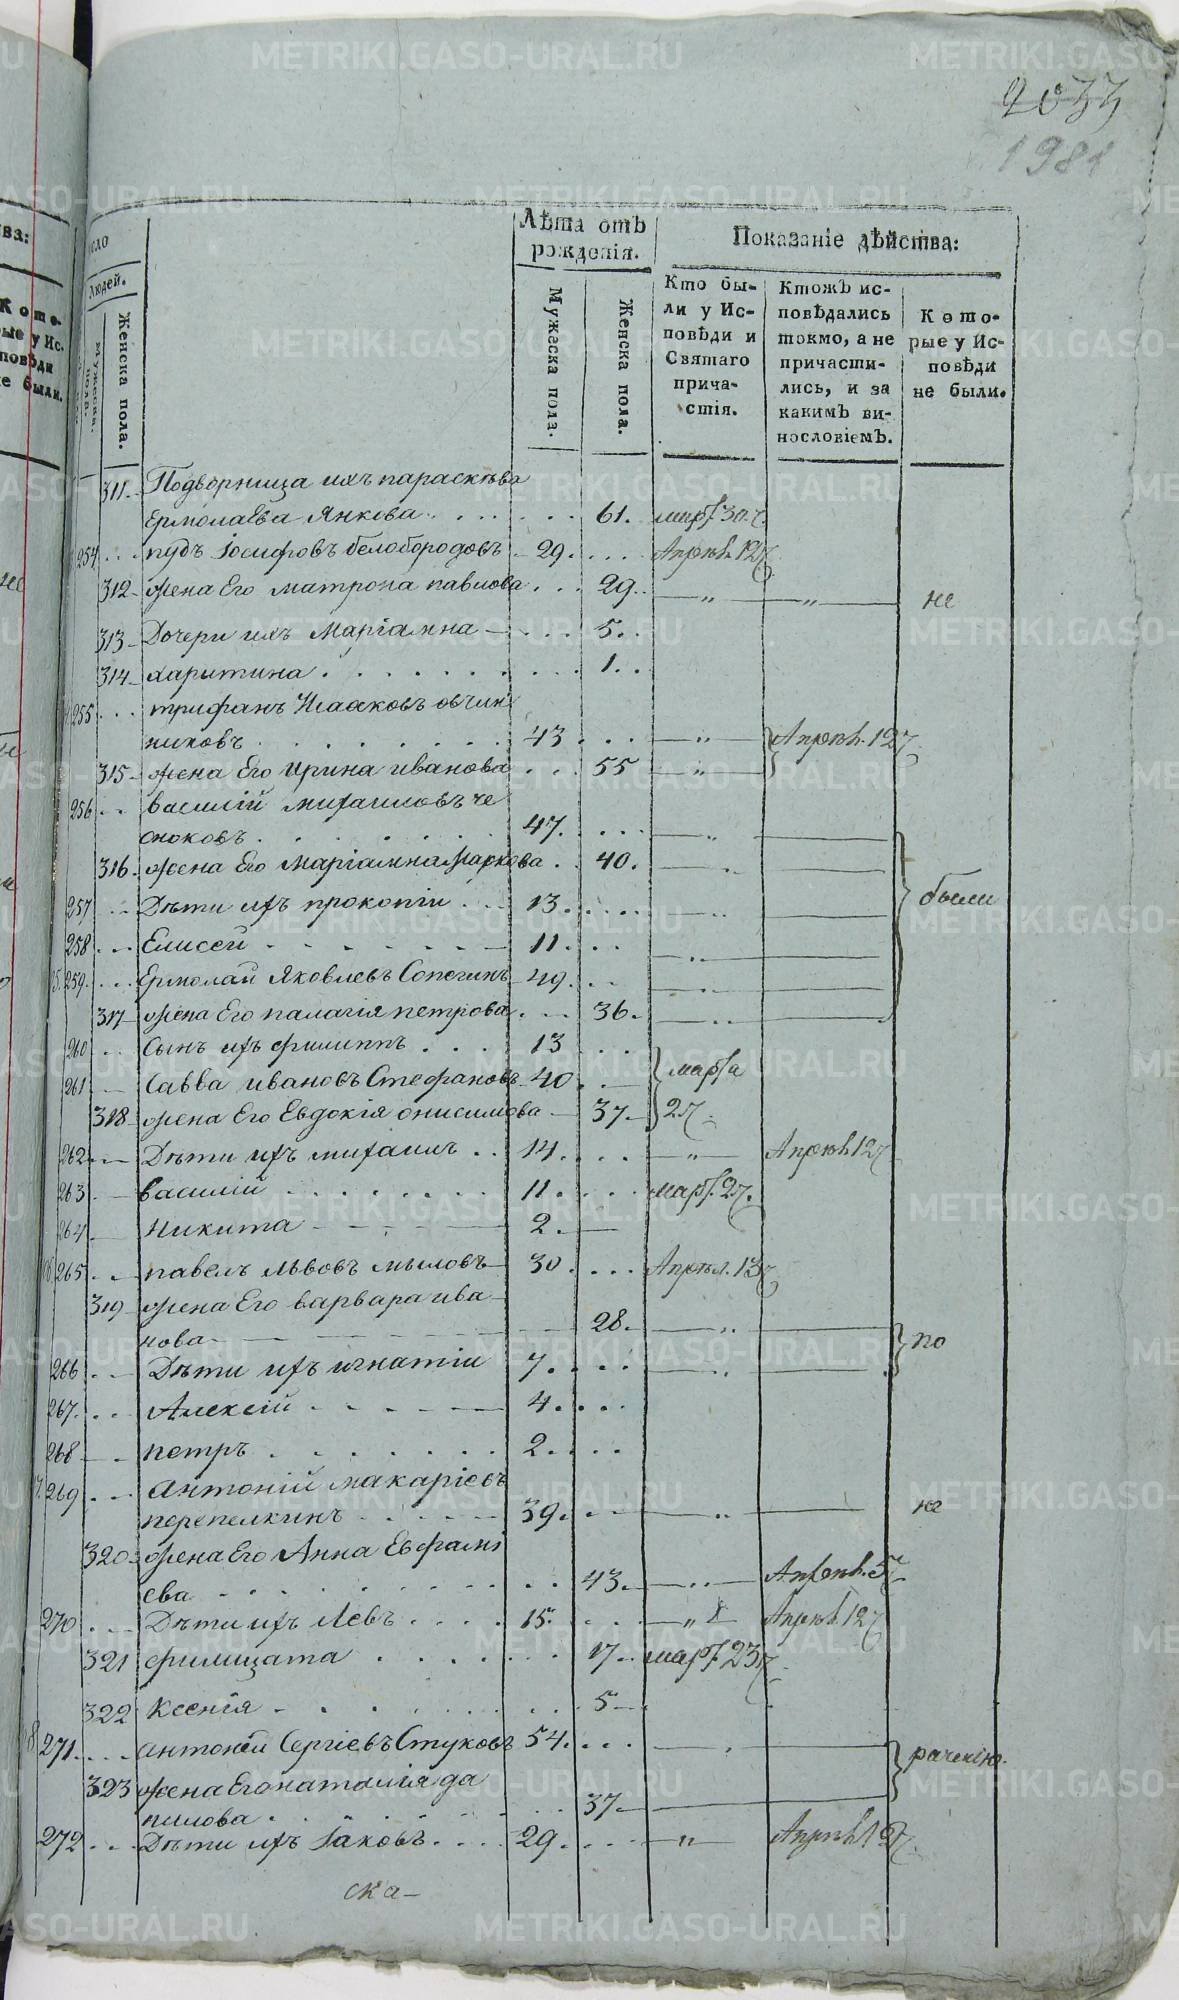 2033
1981
Лѣта отъ рожденія.
Показаніе дѣйства:
Людей.
Мужеска пола.
Женска пола.
Мужеска пола.
Женска пола.
Кто были у Исповѣди и Святаго причастія.
Ктожъ исповѣдались токмо, а не причастились, и за какимъ винословіемъ.
Которые у Исповѣди не были.
311 Подворница ихъ параскѣва
Ермолаева Янкова 61. март. 30.
254 пудъ Іосифовъ белобородовъ 29. Апрѣл. 12
312 жена Его матрона павлова 29. не
313 Дочери ихъ Маріамна 5.
314 харитина 1.
255 трифанъ Исааковъ овчин
никовъ 43 Апрѣл. 12
315 жена Его ирина иванова 55
256 василій михаиловъ че
сноковъ 47.
316 жена Его Маріамна Маркова 40.
257 Дѣти ихъ прокопій 13. были
258 Елисей 11.
259 Ермолай Яковлевъ Сопегинъ 49.
317 жена Его палагія петрова 36.
260 Сынъ ихъ филиппъ 13
261 Савва ивановъ Стефановъ 40 марта
318 жена Его Евдокія онисимова 37 27
262 Дѣти ихъ михаилъ 14. Апрѣл. 12
263 василій 11. март. 27.
264 никита 2.
265 павелъ львовъ мыловъ 30. Апрѣл. 13
319 жена Его варвара ива
нова 28. по
266 Дѣти ихъ игнатій 7.
267 Алексій 4.
268 петръ 2.
269 антоній макаріевъ
перепелкинъ 39. не
320 жена Его Анна Евфамі
ева 43. Апрѣл. 5
270 Дѣти ихъ Левъ 15. Апрѣл. 12
321 филицата 17. март. 23
322 Ксенія 5
271 антоній Сергіевъ Стуковъ 54. рачению.
323 жена Его наталія да
нилова 37
272 Дѣти ихъ Іаковъ 29. Апрѣл. 12
ска-
METRIKI.GASO-URAL.RU